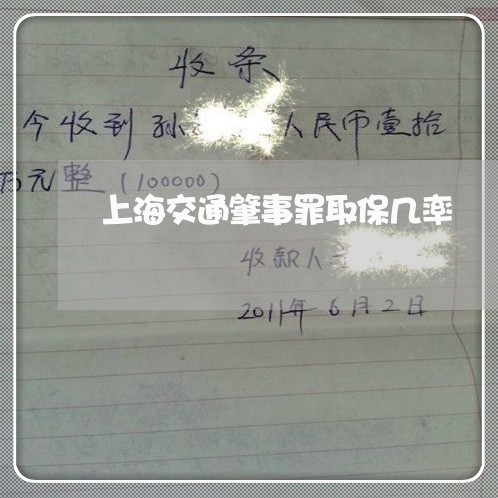 收条
今收到孙 人民币壹拾
万元整(100000)
上海交通肇事罪取保几率
收款人
2011年6月2日